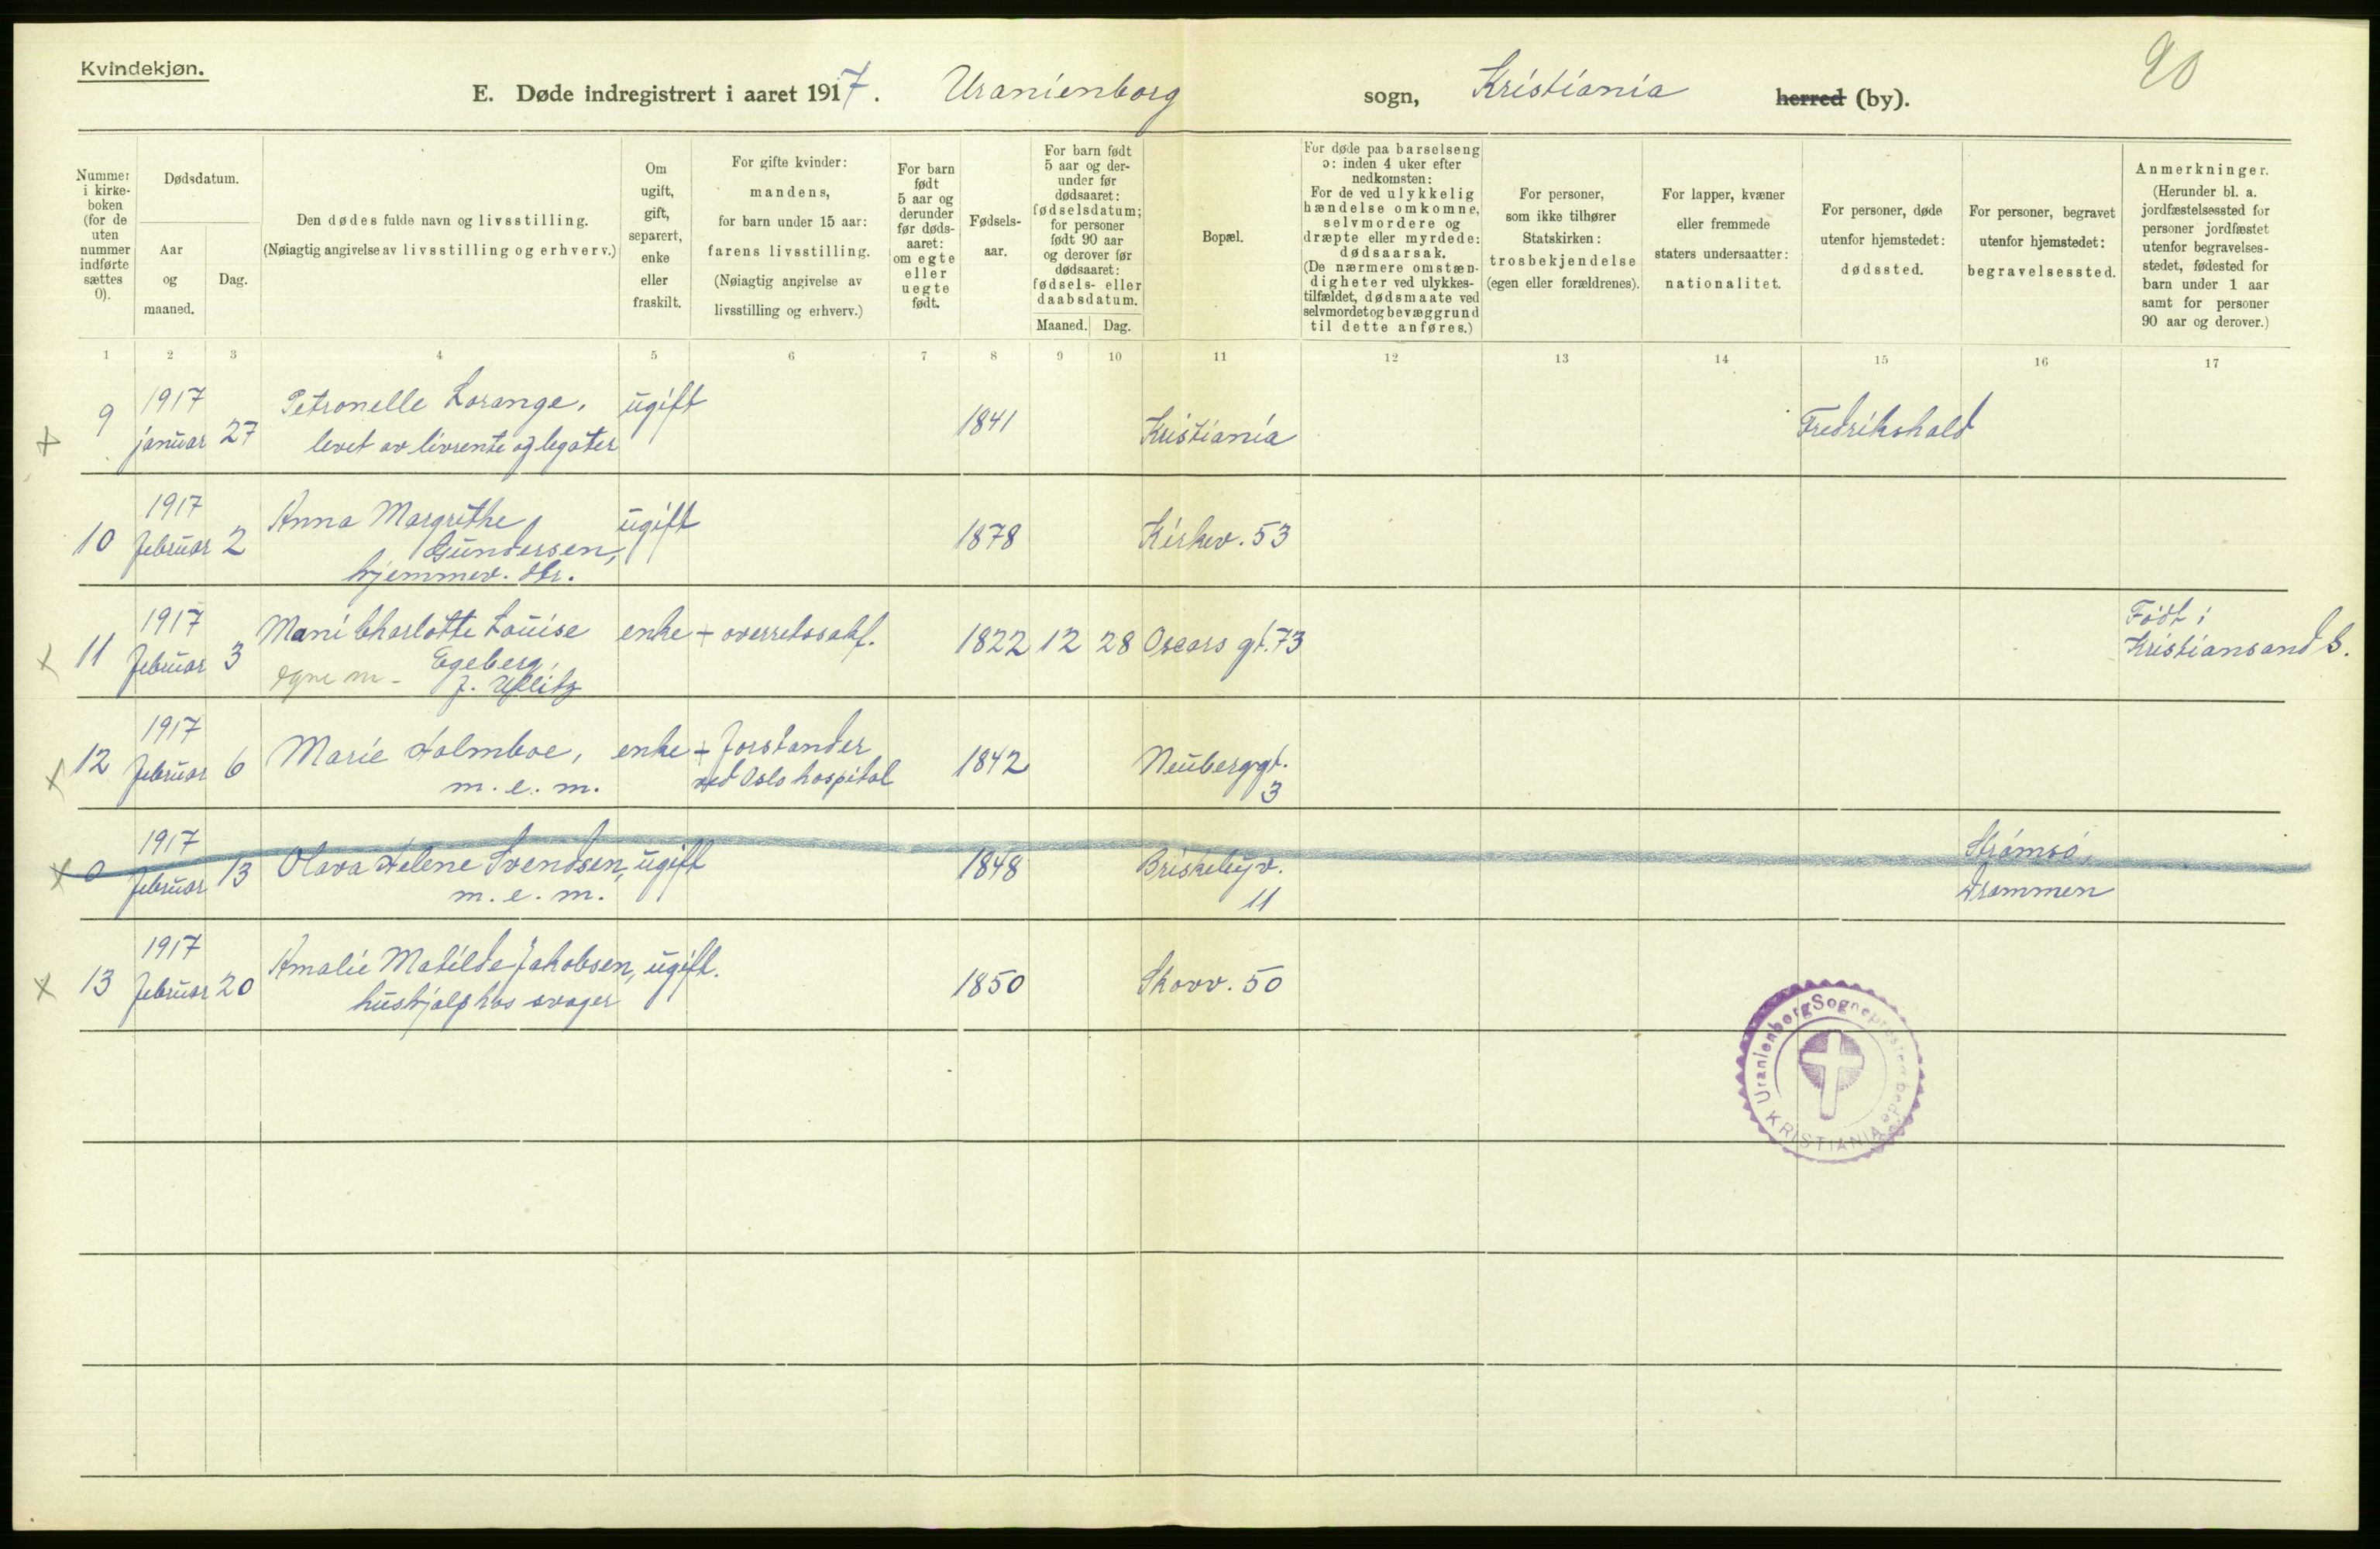 Kvindekjøn.
90
E. Døde indregistrert i aaret 1917. Uranienborg sogn, Kristiania herred (by).
Nummer
i kirke-
boken
(for de
uten
nummer
indførte
sættes
0).
Dødsdatum.
Aar
og
maaned.
Dag.
Den dødes fulde navn og livsstilling.
(Nøiagtig angivelse av livsstilling og erhverv.)
Om
ugift,
gift,
separert,
enke
eller
fraskilt.
For gifte kvinder:
mandens,
for barn under 15 aar:
farens livsstilling.
(Nøiagtig angivelse av
livsstilling og erhverv.)
For barn
født
5 aar og
derunder
før døds-
aaret:
om egte
eller
uegte
født.
Fødsels-
aar.
For barn født
5 aar og der-
under før
dødsaaret:
fødselsdatum;
for personer
født 90 aar
og derover før
dødsaaret:
fødsels- eller
daabsdatum.
Maaned. Dag.
Bopæl.
For døde paa barselseng
ɔ: inden 4 uker efter
nedkomsten:
For de ved ulykkelig
hændelse omkomne,
selvmordere og
dræpte eller myrdede:
dødsaarsak.
(De nærmere omstæn-
digheter ved ulykkes-
tilfældet, dødsmaate ved
selvmordet og bevæggrund
til dette anføres.)
For personer,
som ikke tilhører
Statskirken:
trosbekjendelse
(egen eller forældrenes).
For lapper, kvæner
eller fremmede
staters undersaatter:
nationalitet.
For personer, døde
utenfor hjemstedet:
dødssted.
For personer, begravet
utenfor hjemstedet:
begravelsessted.
Anmerkninger.
(Herunder bl. a.
jordfæstelsessted for
personer jordfæstet
utenfor begravelses-
stedet, fødested for
barn under 1 aar
samt for personer
90 aar og derover.)
1 2 3 4 5 6 7 8 9 10 11 12 13 14 15 16 17
1917 Petronelle Lorange, ugift
9 januar 27 levet av livrente og legater 1841 Kristiania Fredrikshald
1917 Anna Margrethe ugift
10 februar 2 Gundersen, 1878 Kirkev. 53
hjemmev. dtr.
1917 Født i
11 februar 3 Mani Charlotte Louise enke + overretssakf. 1822 12 28 Oscars gt. 73 Kristiansand S.
Egeberg
f. Uflitz
1917
12 februar 6 Marie Holmboe, enke + forstander 1842 Neuberggt.
m. e. m. ved Oslo hospital 3
1917 Strømsø,
0 februar 13 Olava Helene Svendsen, ugift 1848 Briskebyv.
m. e. m. 11 Drammen
1917
13 februar 20 Amalie Matilde Jakobsen, ugift. 1850 Skovv. 50
hushjælp hos svoger
Uranienborg Sogneprestembede
KRISTIANIA